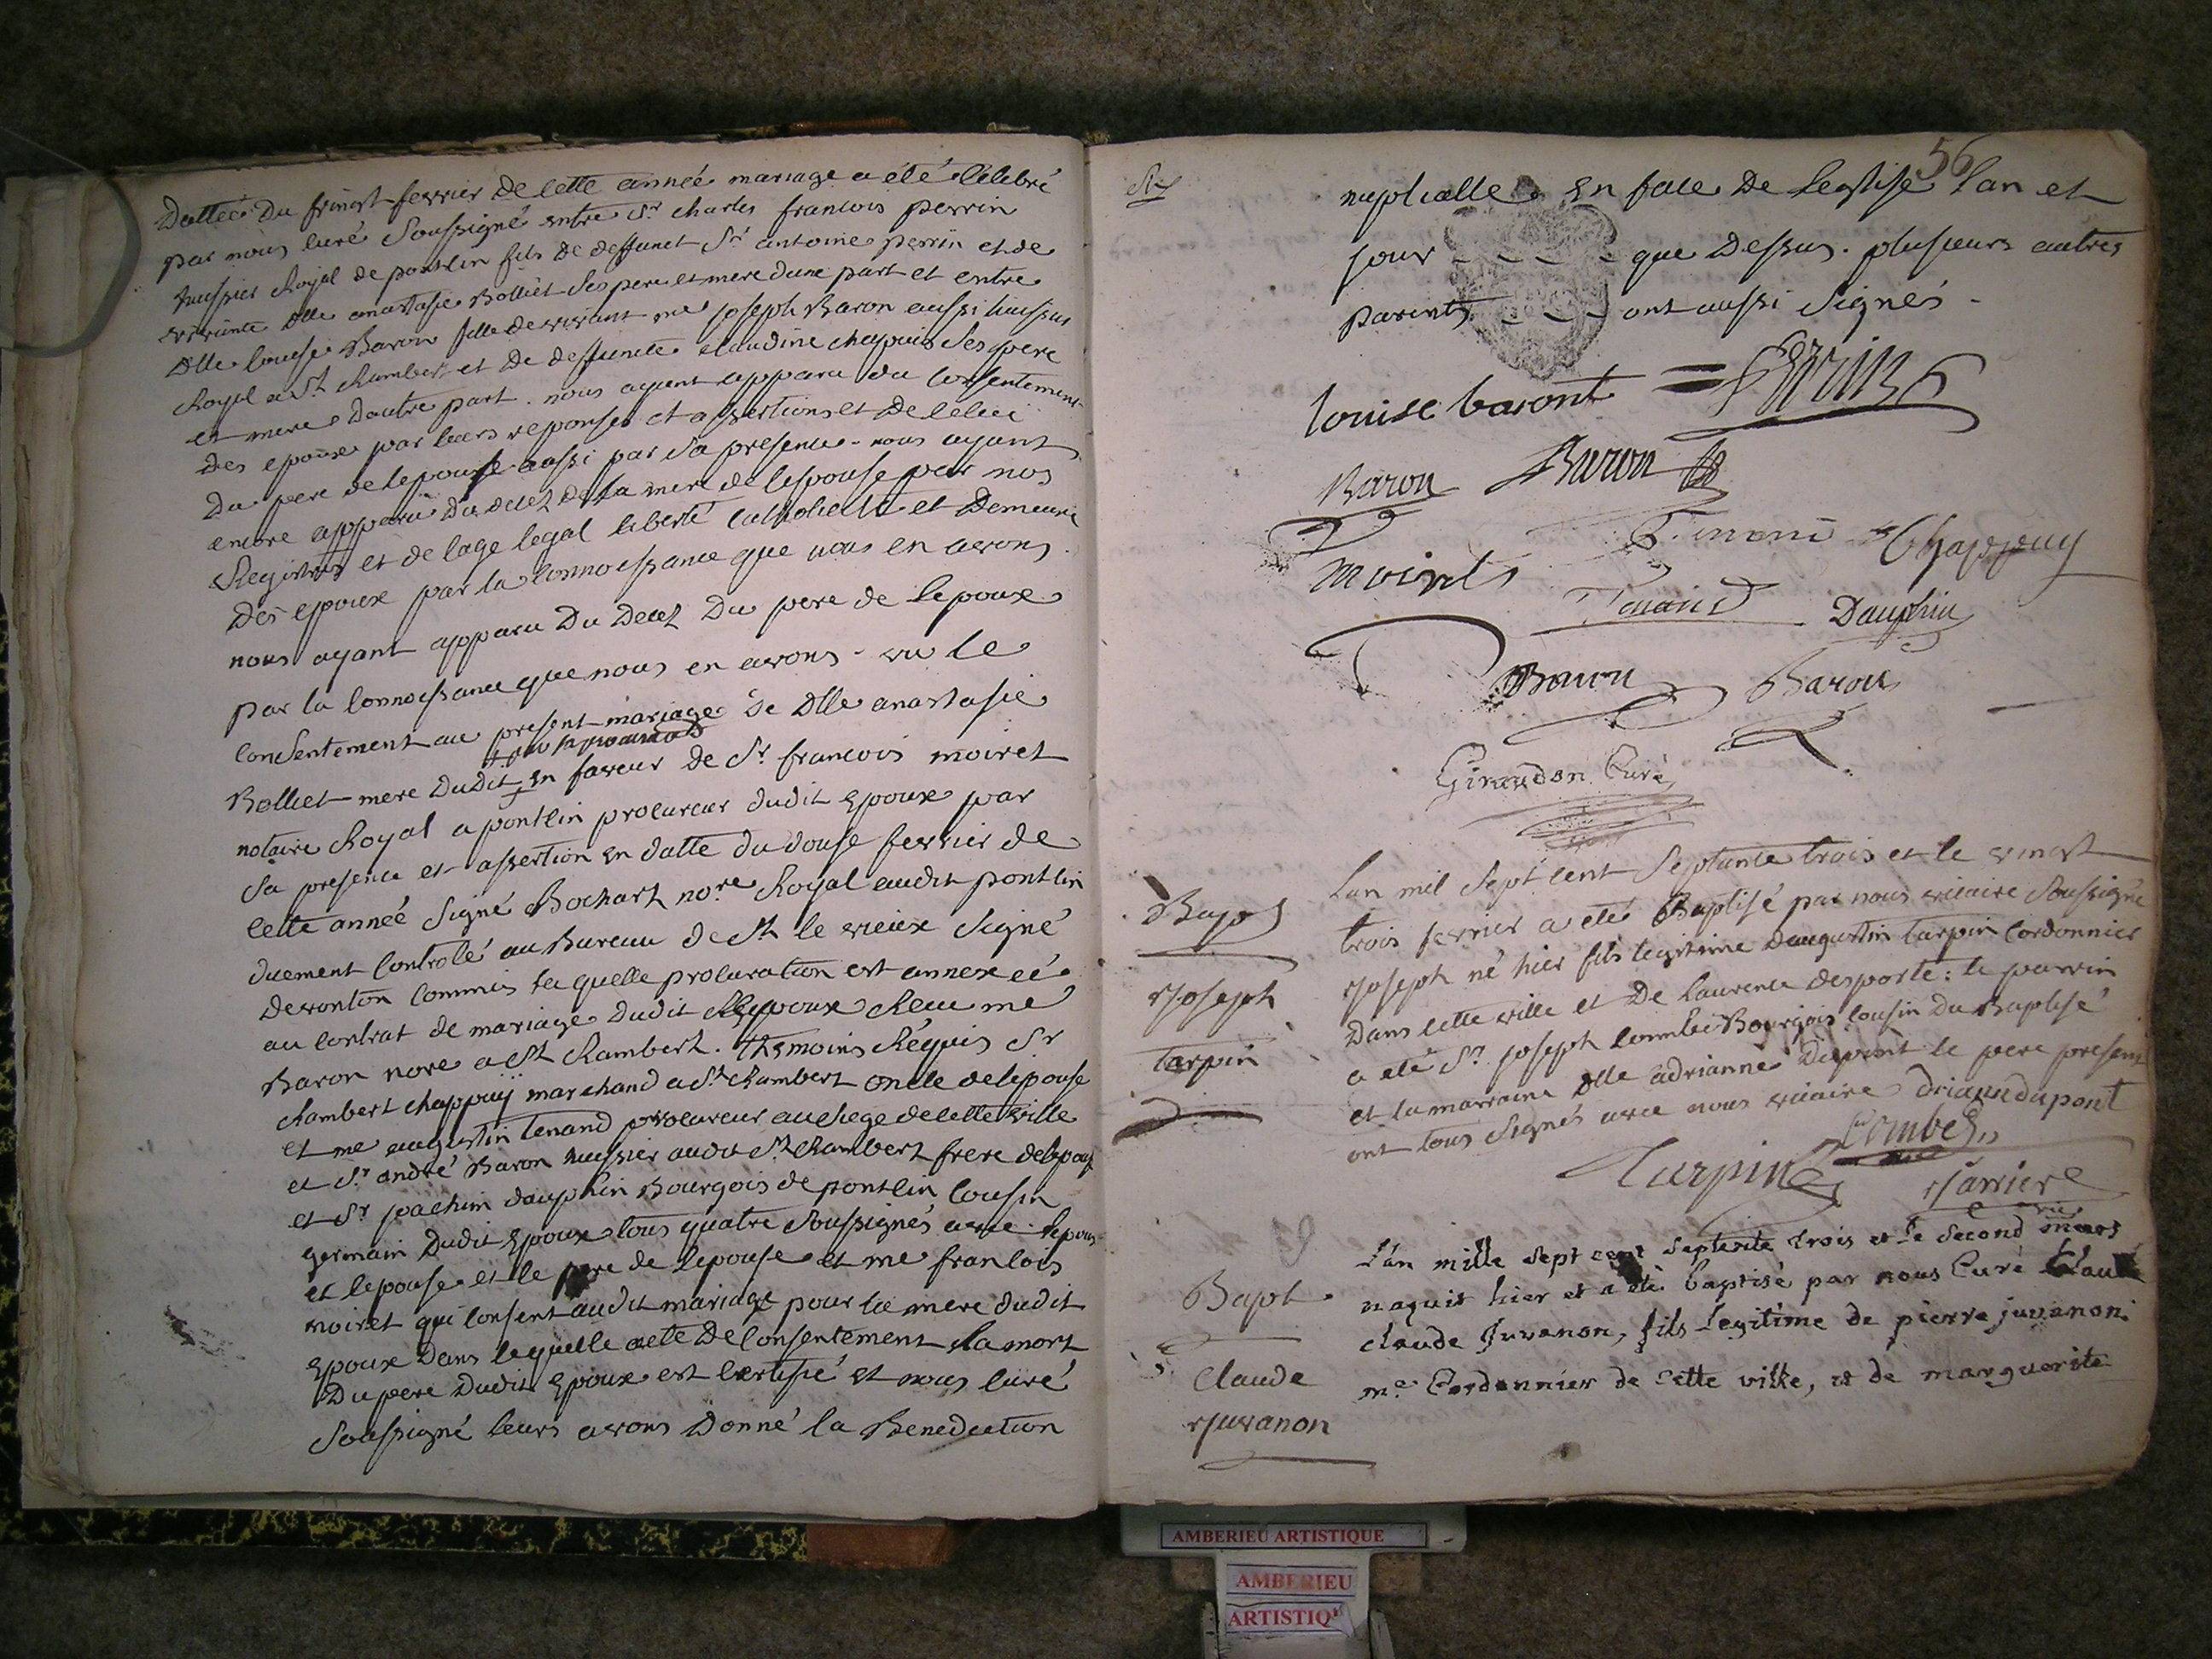 Dattée du vingt fevrier de cette année mariage a été célébré
par nous curé soussigné entre Sr charles francois perrin
huissier Royal de pontdin fils de deffunct Sr antoine perrin et de
vivante dlle anastasie Bolliet ses pere et mere dune part et entre
dlle louise Baron fille de vivant me joseph Baron aussi huissier
Royal a St Rambert et de deffuncte claudine chapuis ses pere
et mere dautre part. nous ayant apparu du consentement
des epoux par leurs reponses et assertions et de celui
du pere de lepouse aussi par sa presence. nous ayant
encore apparu du decez de la mere de lespouse par nos
Registres et de lage legal liberté catholicité et demeure
des epoux par la connoissance que nous en avons.
nous ayant apparu du decez du pere de lepoux
par la connoissance que nous en avons. vu le
consentement au present mariage de dlle anastasie
Bolliet mere dudit en faveur de Sr francois moiret
notaire Royal a pontdin procureur dudit epoux par
sa presence et assertion en datte du douse fevrier de
cette année signé Bochart nore Royal audit pontdin
duement controlé au Bureau de St le vieux signé
devonton commis laquelle procuration est annexeé
au contrat de mariage dudit epoux Receu me
Baron nore a St Rambert. themoins Réquis Sr
Rambert chappuy marchand a St Rambert oncle de lepouse
et me augustin tenand procureur au siege de cette ville
et Sr andré Baron huissier audit St Rambert frere de lepouse
et Sr joachim dauphin Bourgois de pontdin cousin
germain dudit epoux tous quatre soussignés avec lepoux
et lepouse et le pere de lepouse et me francois
moiret qui consent audit mariage pour la mere dudit
epoux dans lequelle acte de consentement la mort
du pere dudit epoux est certifié et nous curé
soussigné leurs avons donné la Benediction
56
nuptialle en face de leglise lan et
jour que dessus. plusieurs autres
parents ont aussi signés.
louise baront = perrin
Baron Baron
moiret Chappuy
Tenand Dauphin
Baron Baron
Giraudon Curé
Bapt
Joseph
tarpin
Lan mil sept cent septante trois et le vingt
trois fevrier a eté Baptisé par nous vicaire soussigné
Joseph né hier fils legitime daugustin tarpin cordonnier
dans cette ville et de laurence desporte: le parrin
a eté Sr joseph combe Bourgois cousin du Baptisé
et la marraine dlle adrianne dupont le pere present
ont tous signés avec nous vicaire driann dupont
Combe
Turpin Jarriere
vic
Bapt
Claude
Juvanon
L'an mille sept cent septente trois et le second mars
naquit hier et a été baptisé par nous Curé
claude Juvanon, fils legitime de pierre juvanon
me Cordonnier de cette ville, et de marguerite
AMBERIEU ARTISTIQUE
AMBERIEU
ARTISTIQ